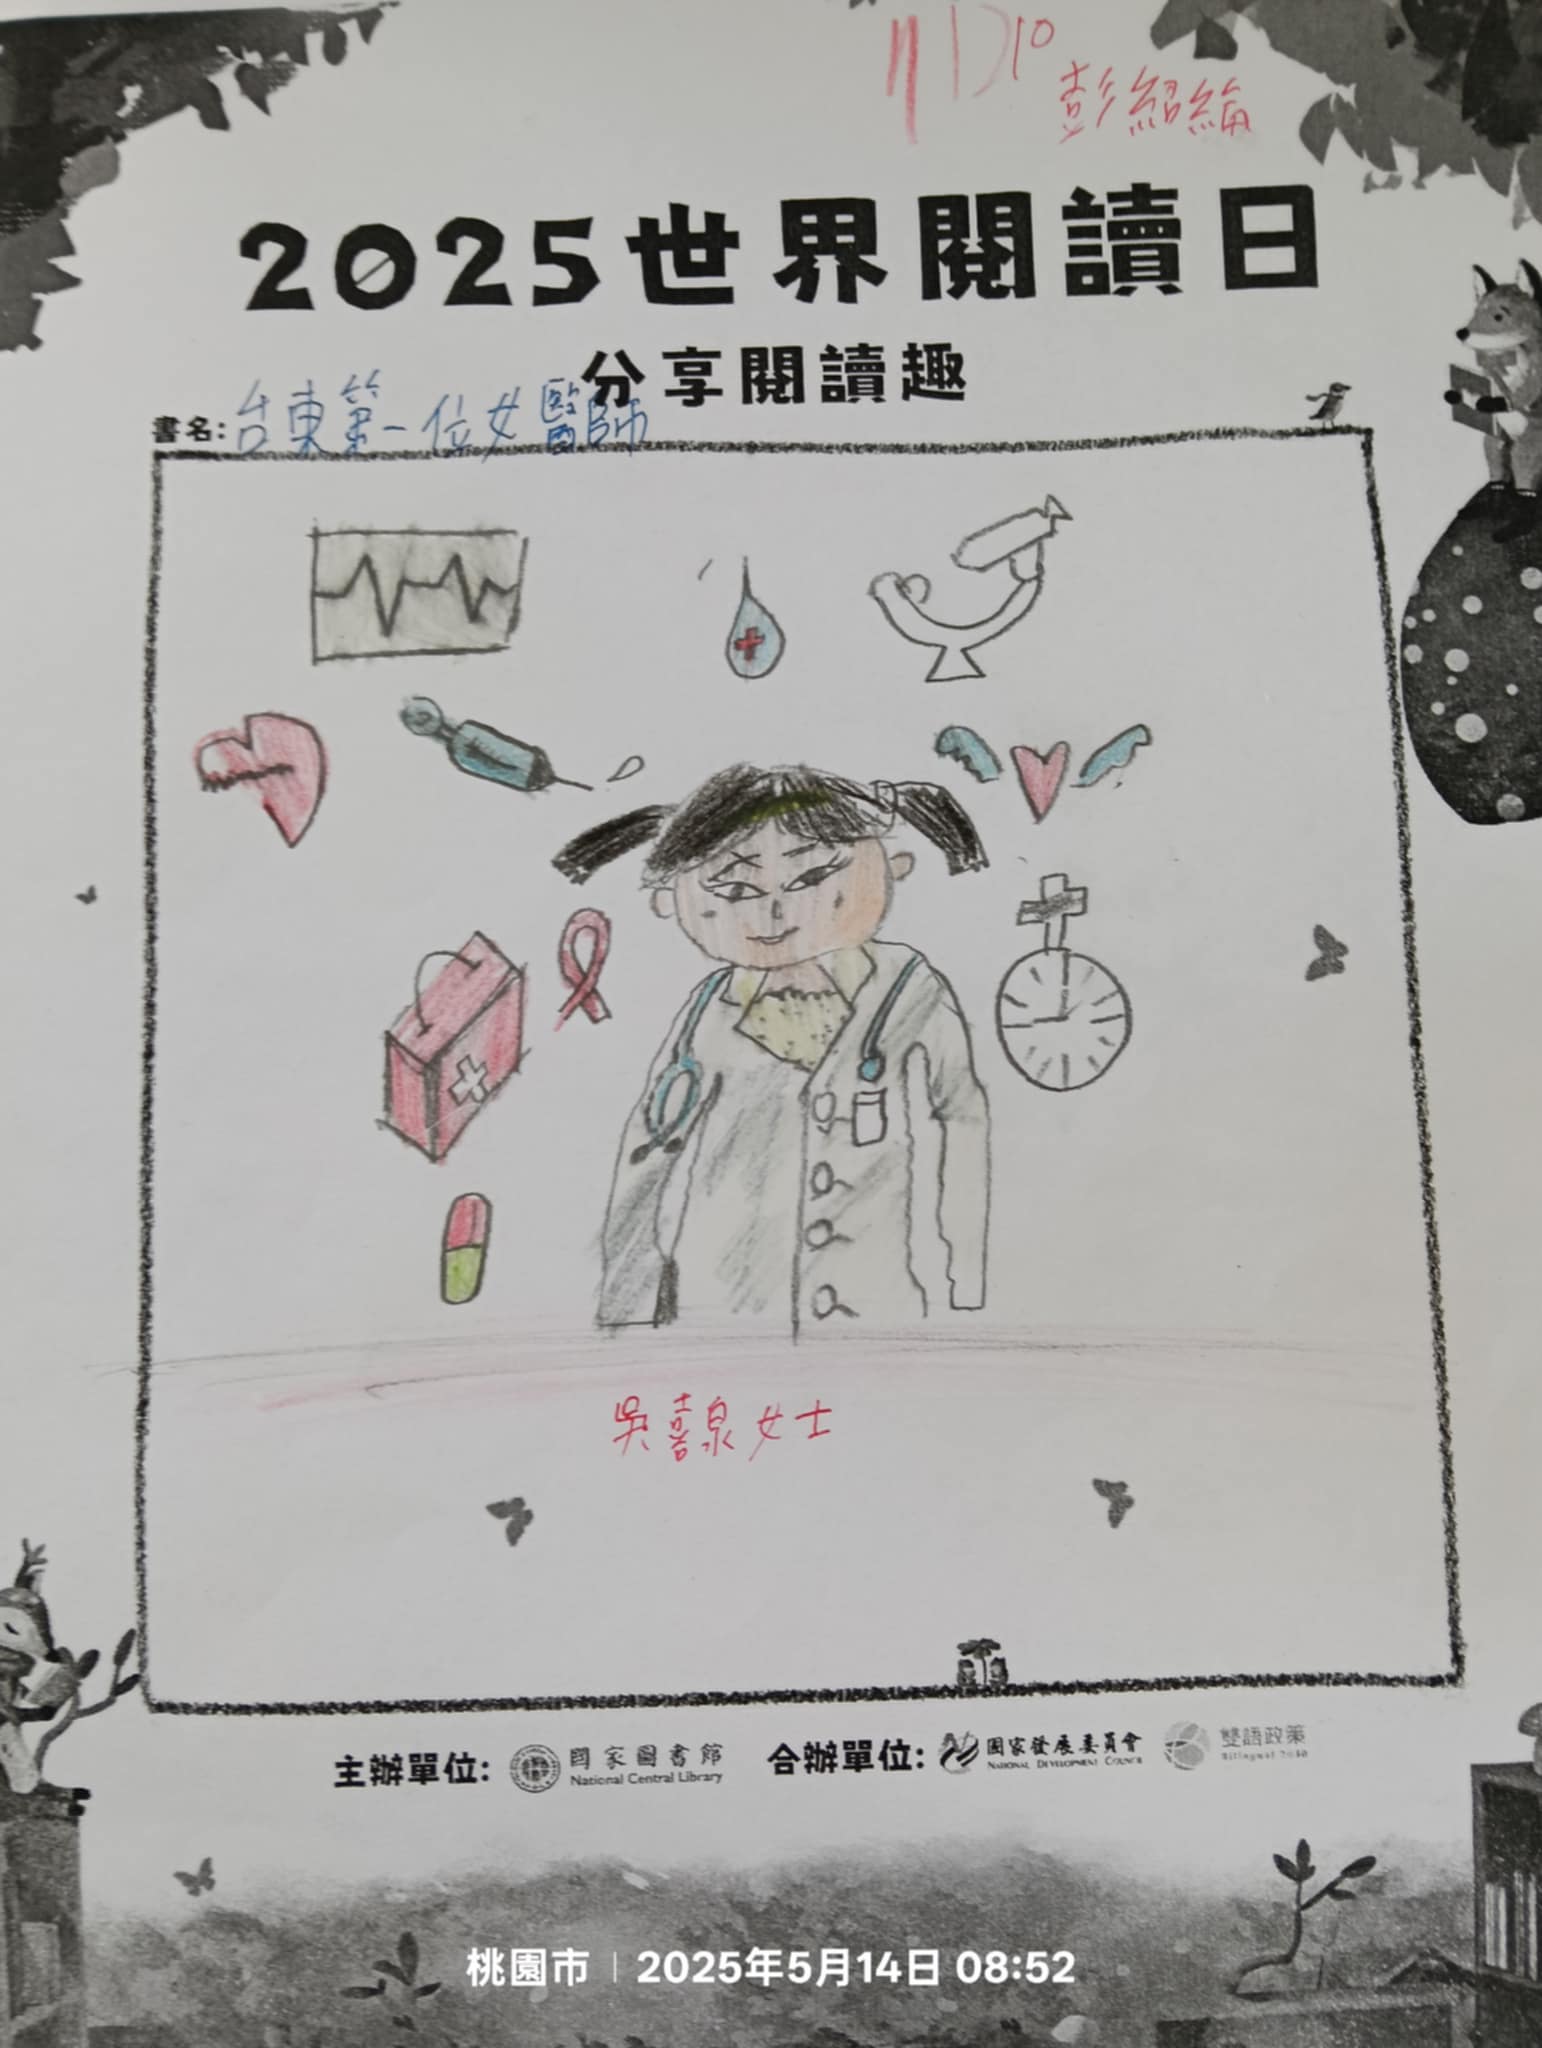 11010 彭紹綸
2025世界閱讀日
分享閱讀趣
書名: 台東第一位女醫師
吳喜泉女士
主辦單位: 國家圖書館 National Central Library 合辦單位: 國家發展委員會 NATIONAL DEVELOPMENT COUNCIL 雙語政策 Bilingual 2030
桃園市 | 2025年5月14日 08:52